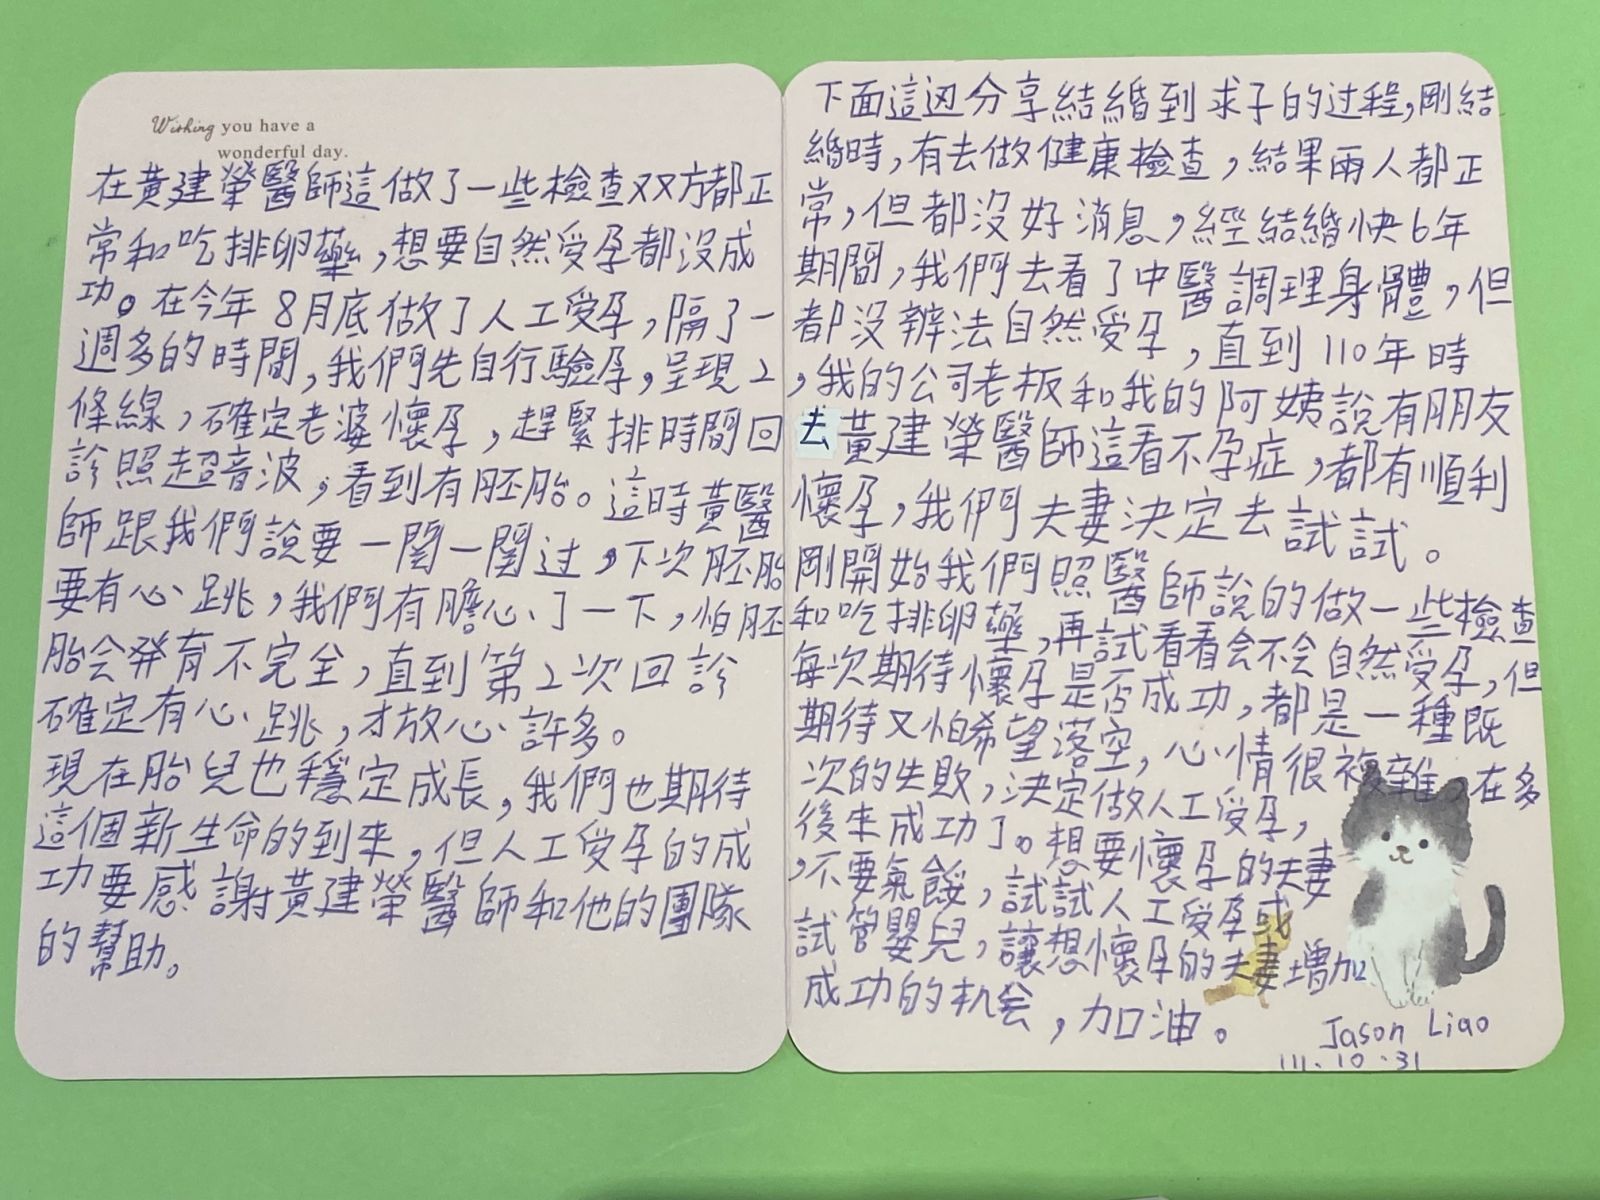 Wishing you have a
wonderful day.
在黃建榮醫師這做了一些檢查双方都正
常和吃排卵藥,想要自然受孕都沒成
功。在今年8月底做了人工受孕,隔了一
週多的時間,我們先自行驗孕,呈現2
條線,確定老婆懷孕,趕緊排時間回
診照超音波,看到有胚胎。這時黃醫
師跟我們說要一関一関过,下次胚胎
要有心跳,我們有膽心了一下,怕胚
胎会発育不完全,直到第2次回診
確定有心跳,才放心許多。
現在胎兒也穩定成長,我們也期待
這個新生命的到來,但人工受孕的成
功要感謝黃建榮醫師和他的團隊
的幫助。
下面這边分享結婚到求子的过程,剛結
婚時,有去做健康檢查,結果兩人都正
常,但都沒好消息,經結婚快6年
期間,我們去看了中醫調理身體,但
都沒辦法自然受孕,直到110年時
,我的公司老板和我的阿姨說有朋友
去黃建榮醫師這看不孕症,都有順利
懷孕,我們夫妻決定去試試。
剛開始我們照醫師說的做一些檢查
和吃排卵藥,再試看看会不会自然受孕,但
每次期待懷孕是否成功,都是一種既
期待又怕希望落空,心情很複雜,在多
次的失敗,決定做人工受孕,
後來成功了。想要懷孕的夫妻
,不要氣餒,試試人工受孕或
試管嬰兒,讓想懷孕的夫妻增加
成功的机会,加油。
Jason Liao
111.10.31